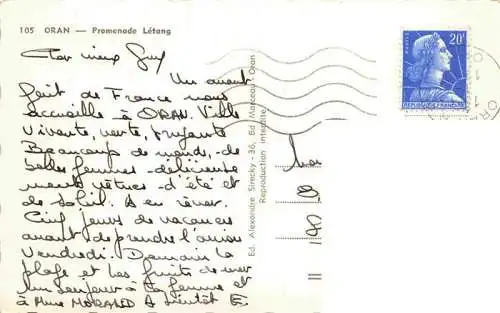 105 ORAN — Promenade Létang
Cher vieux Guy
Un avant
goût de France nous
accueille à ORAN. Ville
Vivante, verte,
Beaucoup de monde, de
belles femmes délicieuse
ments vêtues d'été et
de soleil. A en rêver.
Cinq jours de vacances
avant de prendre l'avion
Vendredi. Demain la
plage et les fruits de mer
Un bonjour à ta femme et
à Mme MORAND A bientôt
Ed. Alexandre Sirecky - 36, Bd Marceau - Oran
Reproduction interdite
POSTES
20F
REPUBLIQUE FRANÇAISE